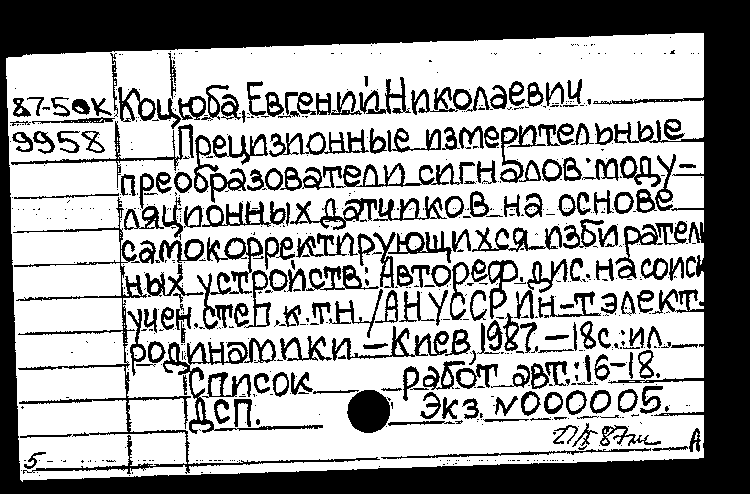 87-5вк Коцюба, Евгений Николаевич.
9958 Прецизионные измерительные
преобразователи сигналов моду-
ляционных датчиков на основе
самокорректирующихся избиратель
ных устройств: Автореф. дис. на соиск
учен. степ. к.т.н. /АН УССР, Ин-т элект-
родинамики. – Киев, 1987. – 18с.: ил.
Список работ авт.: 16-18.
ДСП. Экз. N000005.
5 А